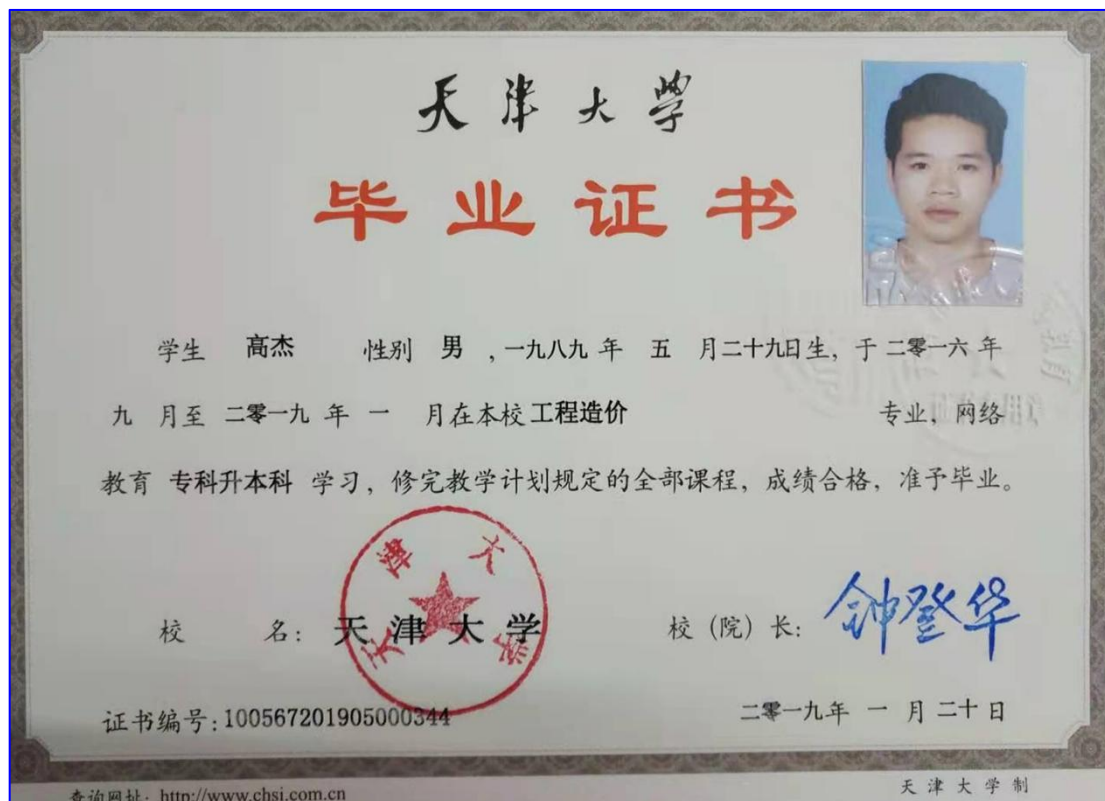 天津大学
毕业证书
学生 高杰 性别 男 ,一九八九 年 五 月二十九日生, 于 二零一六 年
九 月至 二零一九 年 一 月在本校 工程造价 专业, 网络
教育 专科升本科 学习, 修完教学计划规定的全部课程, 成绩合格, 准予毕业。
天津大学
校 名: 天津大学 校(院)长: 钟登华
证书编号: 100567201905000344 二零一九年 一 月 二十 日
查询网址: http://www.chsi.com.cn 天津大学制